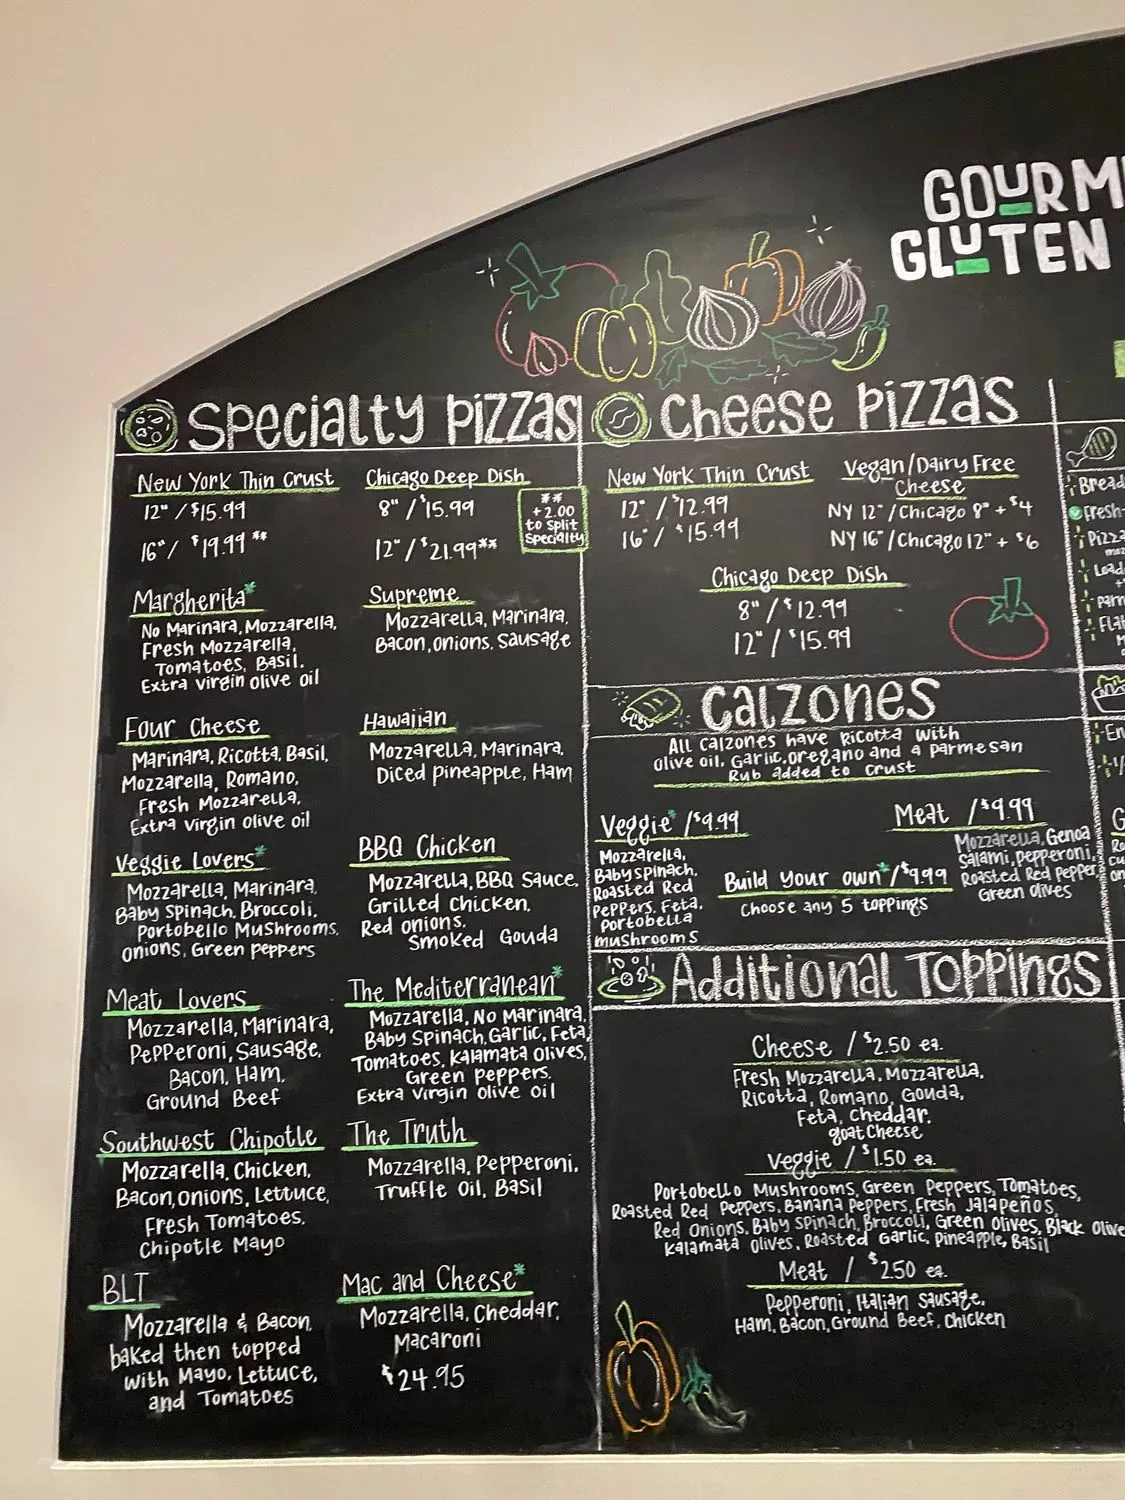 GOURM
GLUTEN
Specialty Pizzas
New York Thin Crust
12" / $15.99
16" / $19.99 **
Chicago Deep Dish
8" / $15.99
12" / $21.99**
**
+2.00
to split
Specialty
Margherita*
No Marinara, Mozzarella,
Fresh Mozzarella,
Tomatoes, Basil,
Extra virgin olive oil
Supreme
Mozzarella, Marinara,
Bacon, onions, Sausage
Four Cheese
Marinara, Ricotta, Basil,
Mozzarella, Romano,
Fresh Mozzarella,
Extra virgin olive oil
Hawaiian
Mozzarella, Marinara,
Diced pineapple, Ham
Veggie Lovers*
Mozzarella, Marinara,
Baby Spinach, Broccoli,
Portobello Mushrooms,
onions, Green Peppers
BBQ Chicken
Mozzarella, BBQ Sauce,
Grilled Chicken,
Red onions,
Smoked Gouda
Meat Lovers
Mozzarella, Marinara,
Pepperoni, Sausage,
Bacon, Ham,
Ground Beef
The Mediterranean*
Mozzarella, No Marinara,
Baby Spinach, Garlic, Feta,
Tomatoes, Kalamata Olives,
Green Peppers,
Extra virgin olive oil
Southwest Chipotle
Mozzarella, Chicken,
Bacon, onions, Lettuce,
Fresh Tomatoes,
Chipotle Mayo
The Truth
Mozzarella, Pepperoni,
Truffle Oil, Basil
BLT
Mozzarella & Bacon
baked then topped
with Mayo, Lettuce,
and Tomatoes
Mac and Cheese*
Mozzarella, Cheddar,
Macaroni
$24.95
Cheese Pizzas
New York Thin Crust
12" / $12.99
16" / $15.99
Vegan/Dairy Free
Cheese
NY 12"/Chicago 8" + $4
NY 16"/Chicago 12" + $6
Chicago Deep Dish
8" / $12.99
12" / $15.99
Calzones
All calzones have Ricotta with
olive oil, Garlic, oregano and a parmesan
Rub added to crust
Veggie* /$9.99
Mozzarella,
Baby spinach,
Roasted Red
Peppers, Feta,
Portobella
mushrooms
Build your own*/$9.99
Choose any 5 toppings
Meat /$9.99
Mozzarella, Genoa
Salami, pepperoni,
Roasted Red Pepper,
Green olives
Additional Toppings
Cheese / $2.50 ea.
Fresh Mozzarella, Mozzarella,
Ricotta, Romano, Gouda,
Feta, Cheddar,
goat Cheese
Veggie / $1.50 ea.
Portobello Mushrooms, Green Peppers, Tomatoes,
Roasted Red Peppers, Banana Peppers, Fresh Jalapeños,
Red Onions, Baby spinach, Broccoli, Green olives, Black Olive
Kalamata olives, Roasted Garlic, Pineapple, Basil
Meat / $2.50 ea.
Pepperoni, Italian Sausage,
Ham, Bacon, Ground Beef, Chicken
Bread
Fresh-
Pizza
Load
Parm
Flat